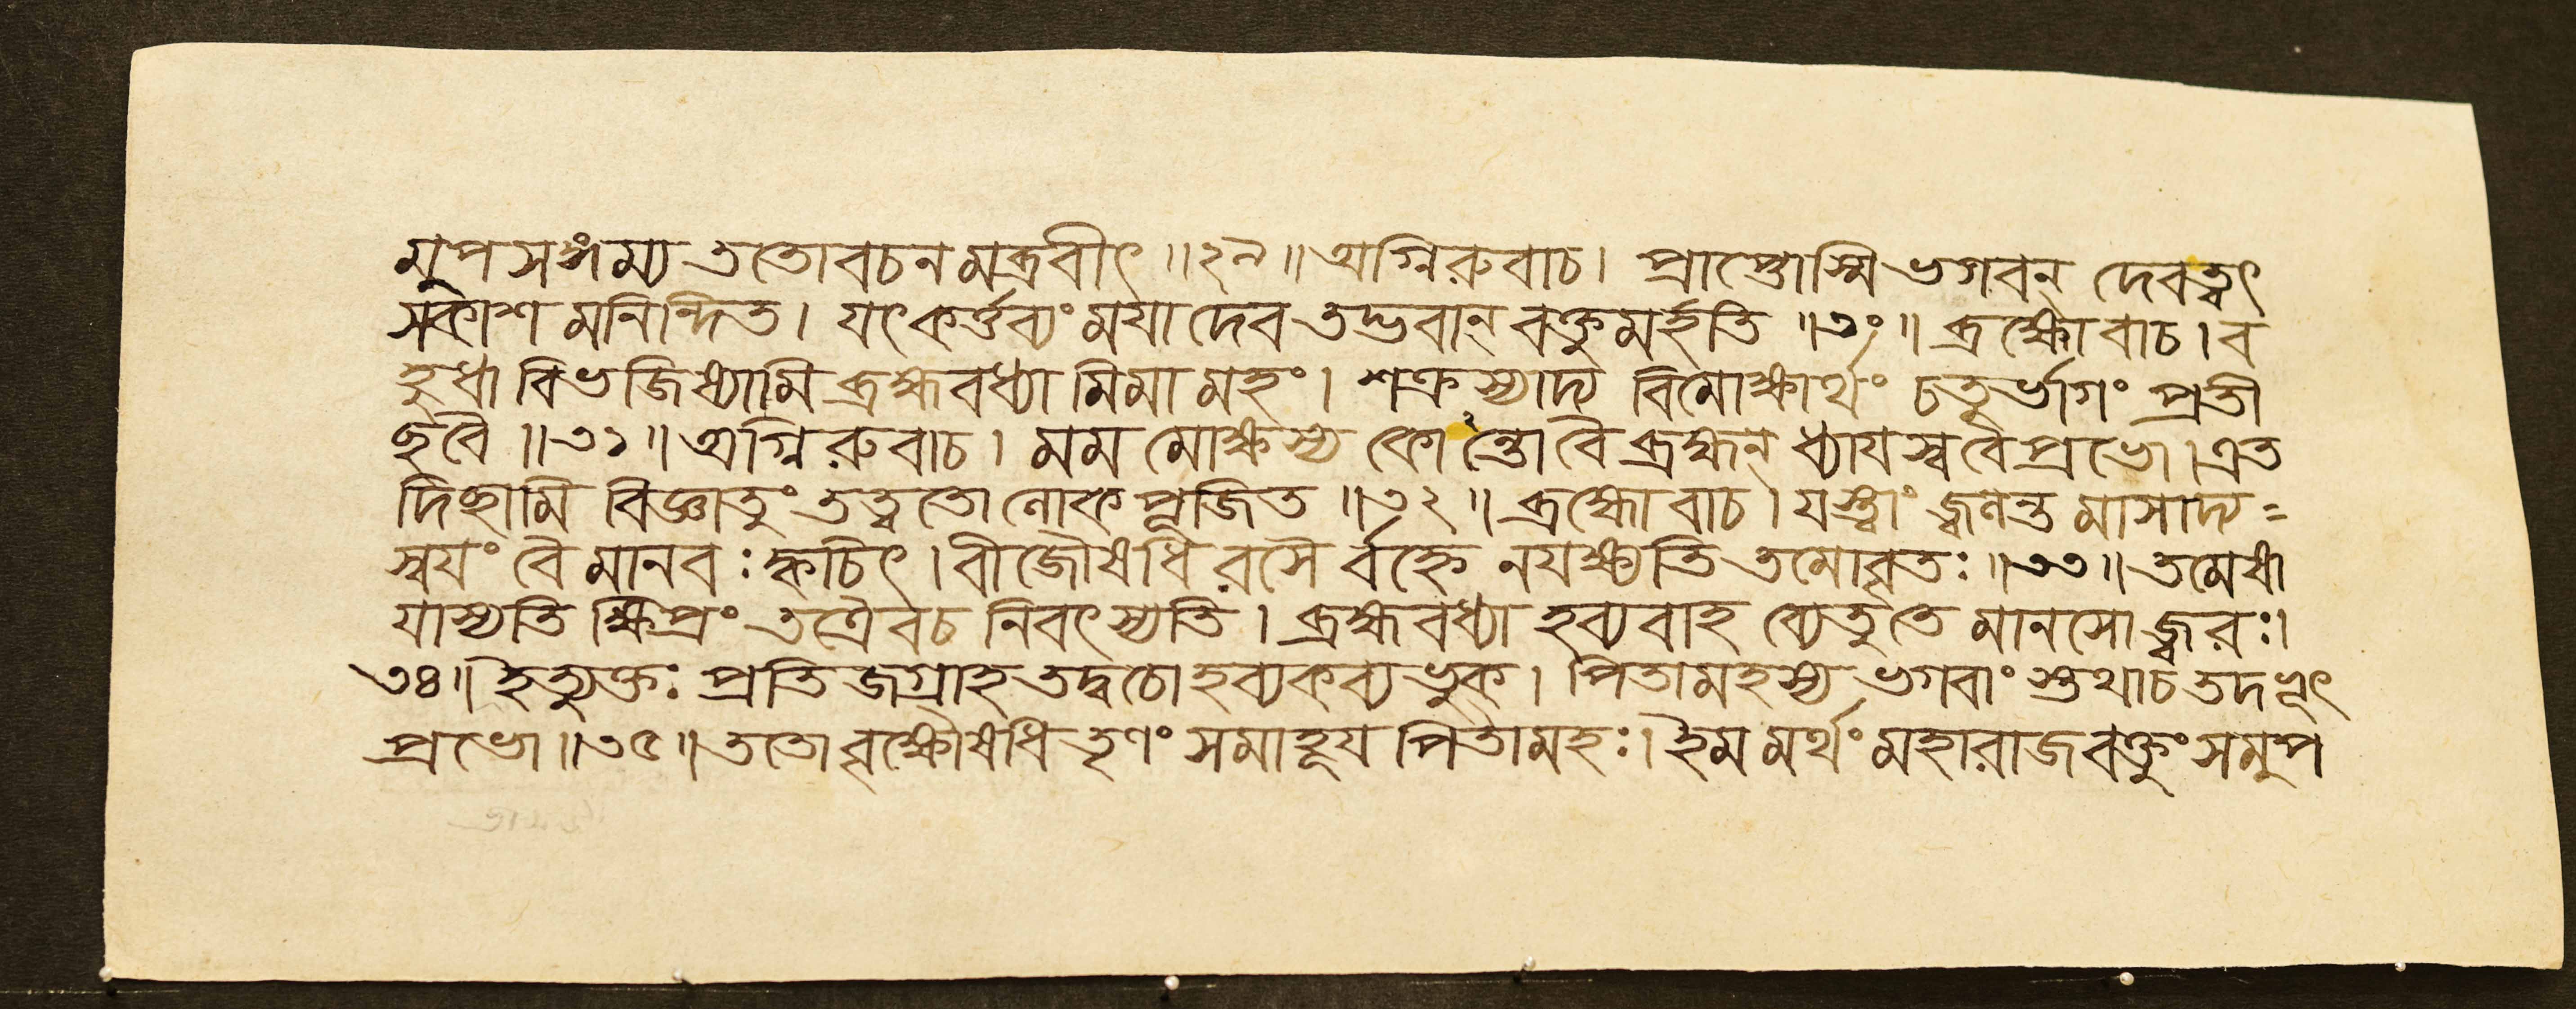 মুপসঙ্গম্য ততোবচনমব্রবীৎ ॥২৯॥ অগ্নিরুবাচ। প্রাপ্তোস্মি ভগবন্ দেবত্বৎ
সকাশ মনিন্দিত। যৎকর্ত্তব্যং ময়া দেব তদ্ভবান্ বক্তুমর্হতি ॥৩০॥ ব্রহ্মোবাচ। ব
হুধা বিভজিষ্যামি ব্রহ্মবধ্যা মিমা মহং। শক্রস্যাদ্য বিমোক্ষার্থং চতুর্ভাগং প্রতী
ছবৈ ॥৩১॥ অগ্নিরুবাচ। মম মোক্ষস্য কোন্তোবৈ ব্রহ্মন্ ধ্যাযস্ববৈপ্রভো। এত
দিছামি বিজ্ঞাতুং তত্ত্বতো লোকপূজিত ॥৩২॥ ব্রহ্মোবাচ। যস্ত্বাং জ্বলন্ত মাসাদ্য=
স্বযং বৈ মানবঃ ক্বচিৎ। বীজৌষধি রসৈ র্বহ্নে নযক্ষ্যতি তমোবৃতঃ ॥৩৩॥ তমেষা
যাস্যতি ক্ষিপ্রং তত্রৈবচ নিবৎস্যতি। ব্রহ্মবধ্যা হব্যবাহ ব্যেতু তে মানসো জ্বরঃ।
৩৪॥ ইত্যুক্তঃ প্রতিজগ্রাহ তদ্বচো হব্যকব্য ভুক। পিতামহস্য ভগবাং স্তথাচ তদভূৎ
প্রভো ॥৩৫॥ ততো বৃক্ষৌষধি তৃণং সমাহূয পিতামহঃ। ইমমর্থং মহারাজ বক্তুং সমুপ